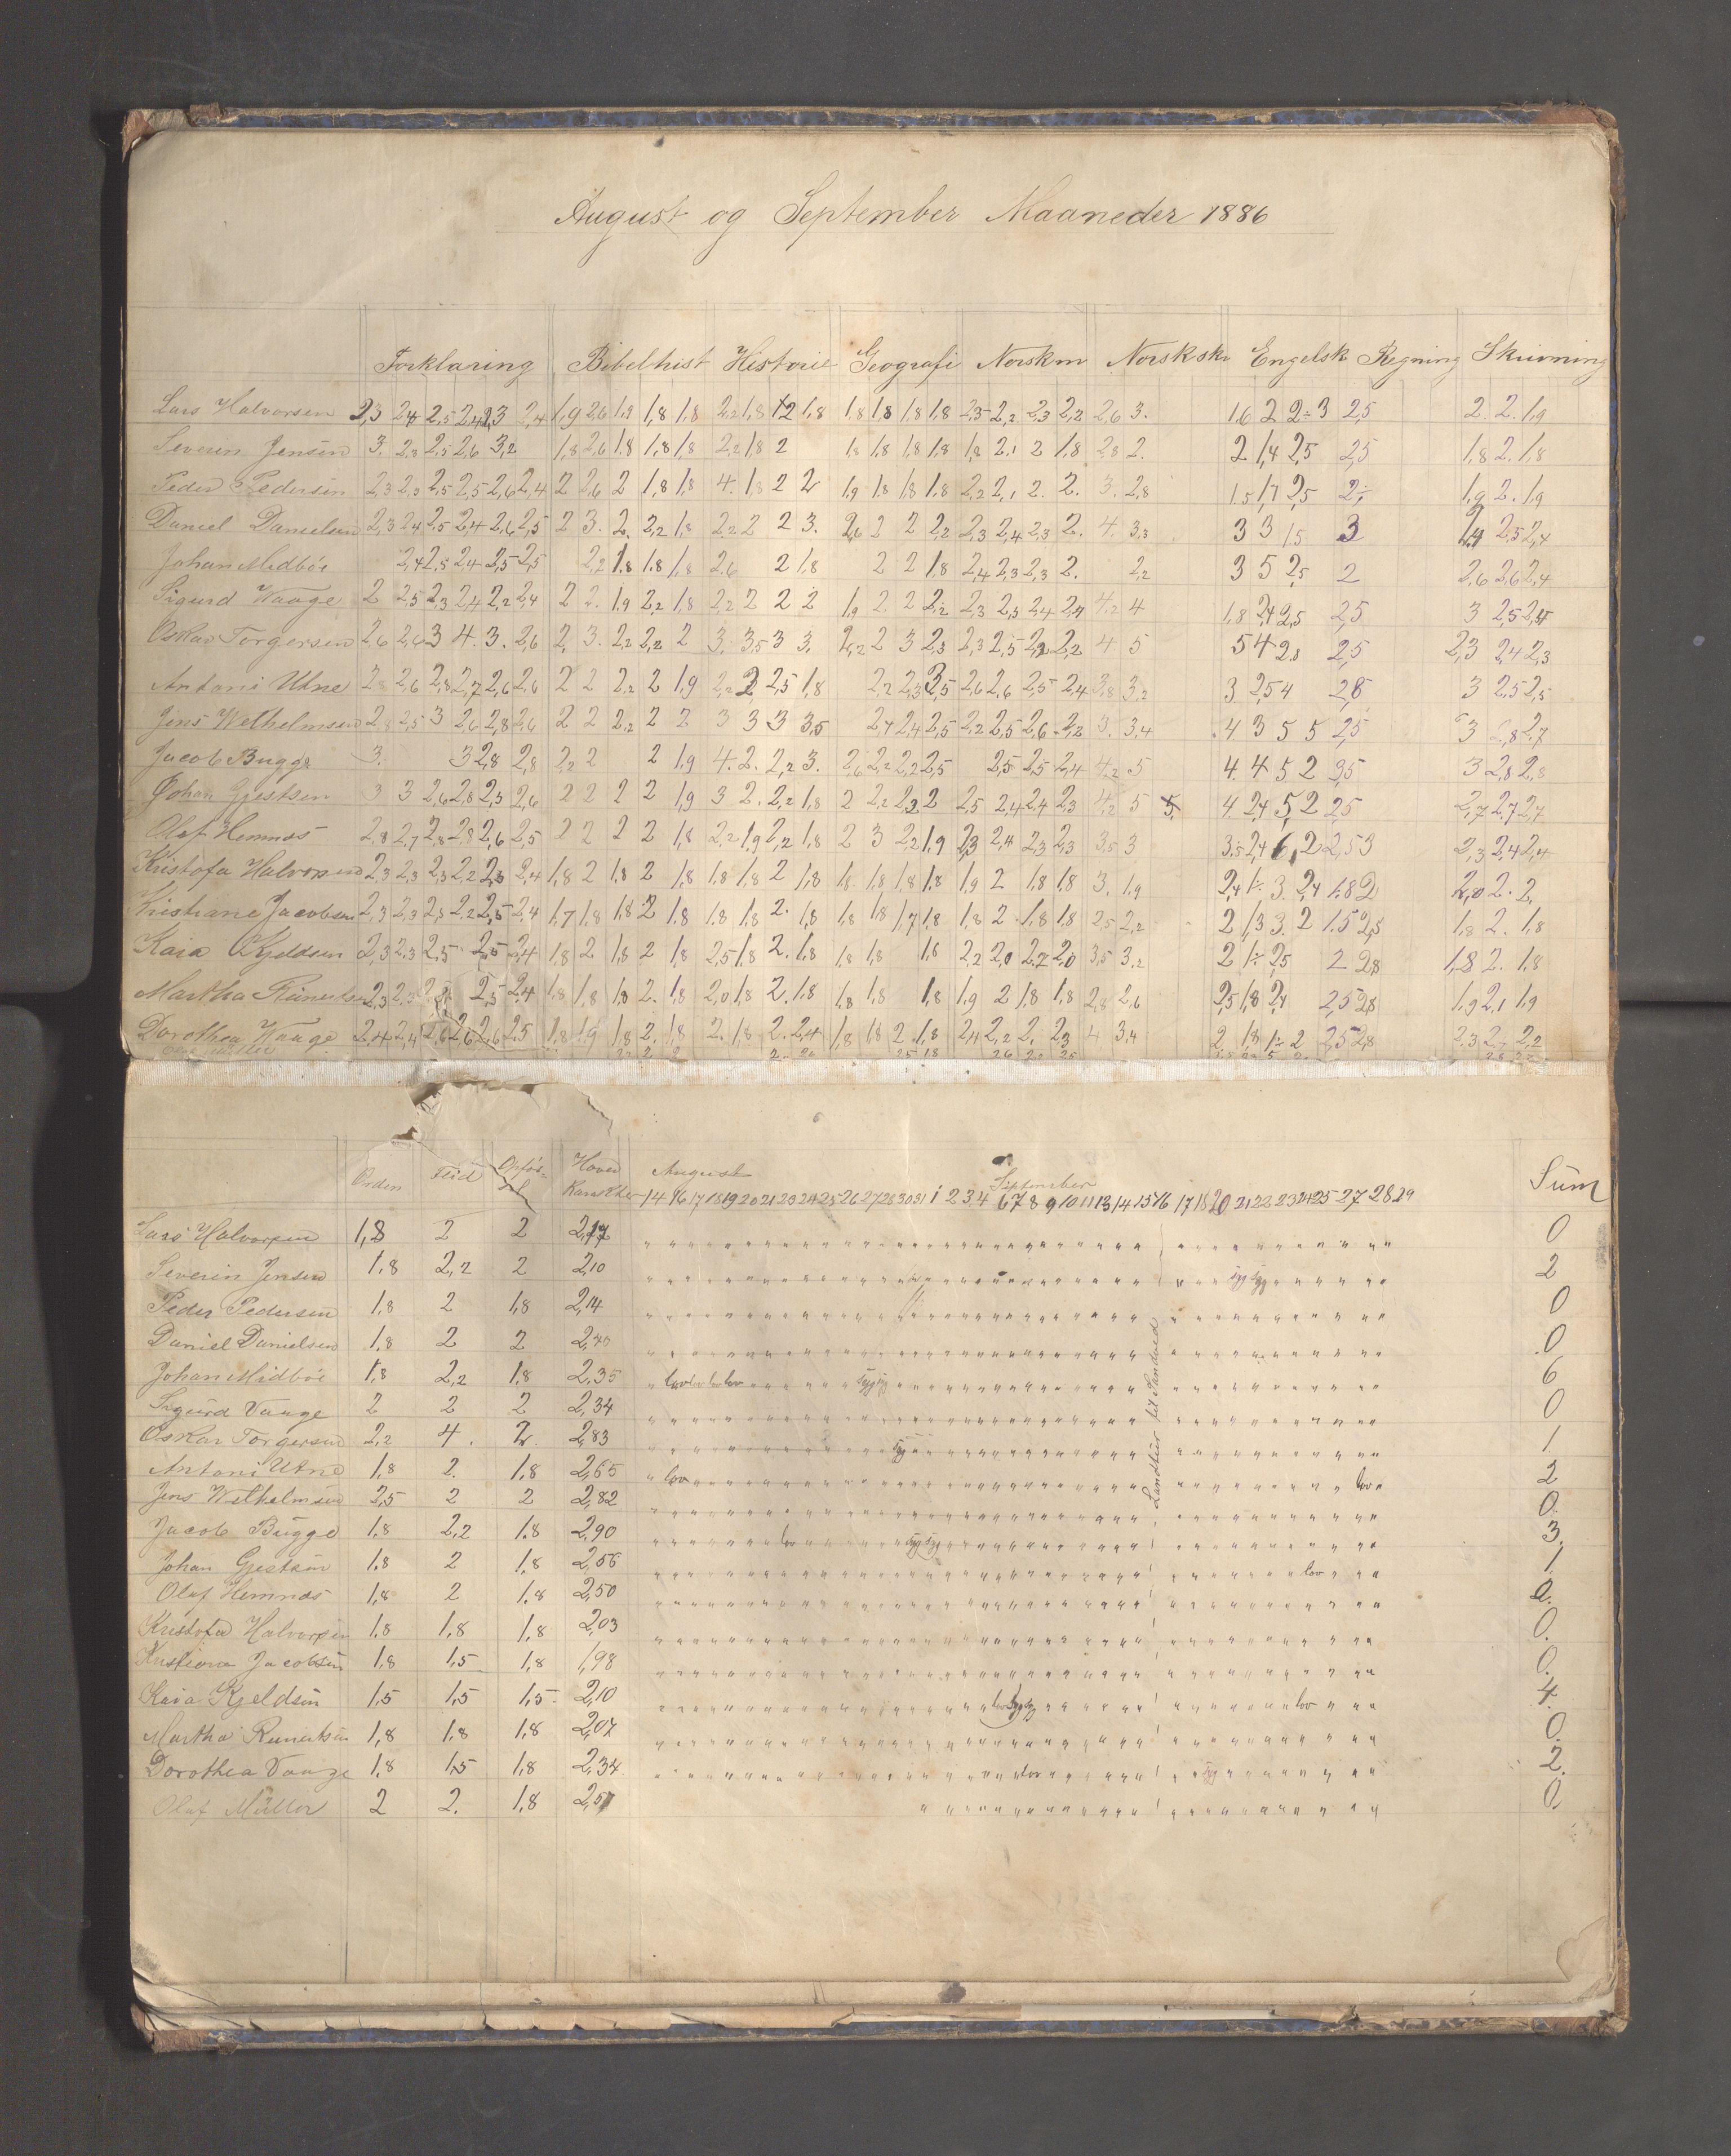 August og September Maaneder 1886
Forklaring Bibelhist Historie Geografi Norskm Norskskr Engelsk Regning Skrivning
Lars Halvorsen 2,3 2,4 2,5 2,4 2,3 2,4 1,9 2,6 1,9 1,8 1,8 2,2 1,8 1,8 1,8 1,8 1,8 2,5 2,2 2,3 2,2 2,6 3. 1,6 2 2÷ 3 2,5 2. 2. 1,9
Severin Jensen 3. 2,3 2,5 2,6 3,2 1,8 2,6 1,8 1,8 1,8 2,2 1,8 2 1,8 1,8 1,8 1,8 1,8 2,1 2 1,8 2,8 2. 2 1,4 2,5 2,5 1,8 2. 1,8
Peder Pedersen 2,3 2,3 2,5 2,5 2,6 2,4 2 2,6 2 1,8 1,8 4. 1,8 2 2 1,9 1,8 1,8 1,8 2,2 2,1 2. 2. 3. 2,8 1,5 1,7 2,5 2÷ 1,9 2. 1,9
Daniel Danielsen 2,3 2,4 2,5 2,4 2,6 2,5 2 3. 2. 2,2 1,8 2,2 2 2 3. 2,6 2 2 2,2 2,3 2,4 2,3 2. 4. 3,3 3 3 1,5 3 2,5 2,4
Johan Midböe 2,4 2,5 2,4 2,5 2,5 2,2 1,8 1,8 1,8 2,6 2 1,8 2 2 1,8 2,4 2,3 2,3 2. 2,2 3 5 2,5 2 2,6 2,6 2,4
Sigurd Waage 2 2,5 2,3 2,4 2,2 2,4 2 2. 1,9 2,2 1,8 2,2 2 2 2 1,9 2 2 2,2 2,3 2,3 2,4 2,4 4,2 4 1,8 2,4 2,5 2,5 3 2,5 2,4
Oskar Torgersen 2,6 2,6 3 4. 3. 2,6 2. 3. 2,2 2,2 2 3. 3,5 3 3. 2,2 2 3 2,3 2,3 2,5 2,2 2,2 4 5 5 4 2,8 2,5 2,3 2,4 2,3
Antoni Utne 2,8 2,6 2,8 2,7 2,6 2,6 2 2 2,2 2 1,9 2,2 2 2,5 1,8 2,2 2,3 3,5 2,6 2,6 2,5 2,4 3,8 3,2 3 2,5 4 2,8 3 2,5 2,5
Jens Wethelmsen 2,8 2,5 3 2,6 2,8 2,6 2 2 2,2 2 2 3 3 3 3,5 2,4 2,4 2,5 2,2 2,5 2,6 2,2 3. 3,4 4 3 5 5 2,5 3 2,8 2,7
Jacob Bugge 3. 3 2,8 2,8 2,2 2 2 1,9 4. 2. 2,2 3. 2,6 2,2 2,2 2,5 2,5 2,5 2,4 4,2 5 4. 4 5 2 3,5 3 2,8 2,8
Johan Gjestsen 3 3 2,6 2,8 2,3 2,6 2 2 2 2 1,9 3 2. 2,2 1,8 2 2,2 2,3 2 2,5 2,4 2,4 2,3 4,2 5 5. 4 2,4 5, 2 2,5 2,7 2,7 2,7
Olaf Hemnæs 2,8 2,7 2,8 2,8 2,6 2,5 2 2 2 2 1,8 2,2 1,9 2,2 1,8 2 3 2,2 1,9 2,3 2,4 2,3 2,3 3,5 3 3,5 2,4 6, 2 2,5 3 2,3 2,4 2,4
Kristofa Halvorsen 2,3 2,3 2,3 2,2 2,3 2,4 1,8 2 1,8 2 1,8 1,8 1,8 2 1,8 1,8 1,8 1,8 1,8 1,9 2 1,8 1,8 3. 1,9 2,4 1÷ 3 2,4 1,8 2 2,0 2. 2.
Kristiane Jacobsen 2,3 2,3 2,3 2,2 2,5 2,4 1,7 1,8 1,8 2 1,8 1,8 1,8 2. 1,8 1,8 1,8 1,7 1,8 1,8 2 1,8 1,8 2,5 2,2 2 1,3 3. 2 1,5 2,5 1,8 2. 1,8
Kaia Kjeldsen 2,3 2,3 2,5 2,5 2,4 1,8 2 1,8 2 1,8 2,5 1,8 2. 1,8 1,8 1,8 1,8 2,2 2,0 2,2 2,0 3,5 3,2 2 1÷ 2,5 2 2,8 1,8 2. 1,8
Martha Reinertsen 2,3 2,3 2,5 2,4 1,8 1,8 1,8 2. 1,8 2,0 1,8 2. 1,8 1,8 1,8 1,8 1,9 2 1,8 1,8 2,8 2,6 2,5 1,8 2,4 2,5 2,8 1,9 2,1 1,9
Dorothea Waage 2,4 2,4 2,6 2,6 2,6 2,5 1,8 1,9 1,8 2. 1,8 2. 1,8 2. 2,4 1,8 1,8 2 1,8 2,4 2,2 2. 2,3 4 3,4 2. 1,8 1÷ 2 2,5 2,8 2,3 2. 2,2
Orden Flid Opförsel Hoved Karakter August September Sum
14 16 17 18 19 20 21 23 24 25 26 27 28 30 31 1 2 3 4 6 7 8 9 10 11 13 14 15 16 17 18 20 21 22 23 24 25 27 28 29
Landtur til Sandved
Lars Halvorsen 1,8 2 2 2,17 0
Severin Jensen 1,8 2,2 2 2,10 syg syg 2
Peder Pedersen 1,8 2 1,8 2,14 0
Daniel Danielsen 1,8 2 2 2,40 0
Johan Midböe 1,8 2,2 1,8 2,35 lov lov lov lov syg syg 6
Sigurd Vaage 2 2 2 2,34 0
Oskar Torgersen 2,2 4. 2. 2,83 syg 1.
Antoni Utne 1,8 2. 1,8 2,65 lov lov 2
Jens Wethelmsen 2,5 2 2 2,82 0.
Jacob Bugge 1,8 2,2 1,8 2,90 lov syg syg 3.
Johan Gjestsen 1,8 2 1,8 2,56 lov 1.
Olaf Hemnæs 1,8 2 1,8 2,50 0.
Kristofa Halvorsen 1,8 1,8 1,8 2,03 0.
Kristiane Jacobsen 1,8 1,5 1,8 1,98 0.
Kaia Kjeldsen 1,5 1,5 1,5 2,10 lov syg syg lov 4.
Martha Reinertsen 1,8 1,8 1,8 2,07 0.
Dorothea Vaage 1,8 1,5 1,8 2,34 lov syg 2.
Olaf Müller 2 2. 1,8 2,57 0.